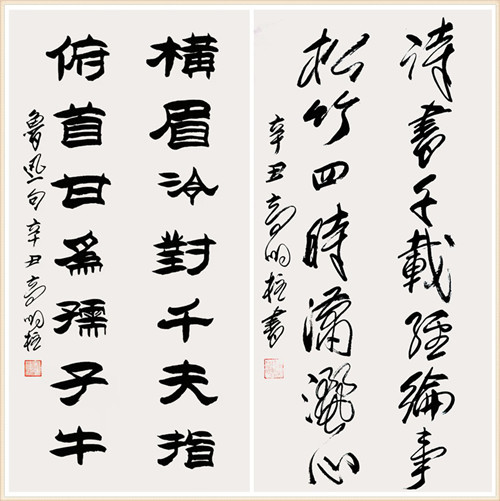 詩書千載經綸事
松竹四時瀟灑心
辛丑高明柱書
橫眉冷對千夫指
俯首甘為孺子牛
魯迅句辛丑高明柱